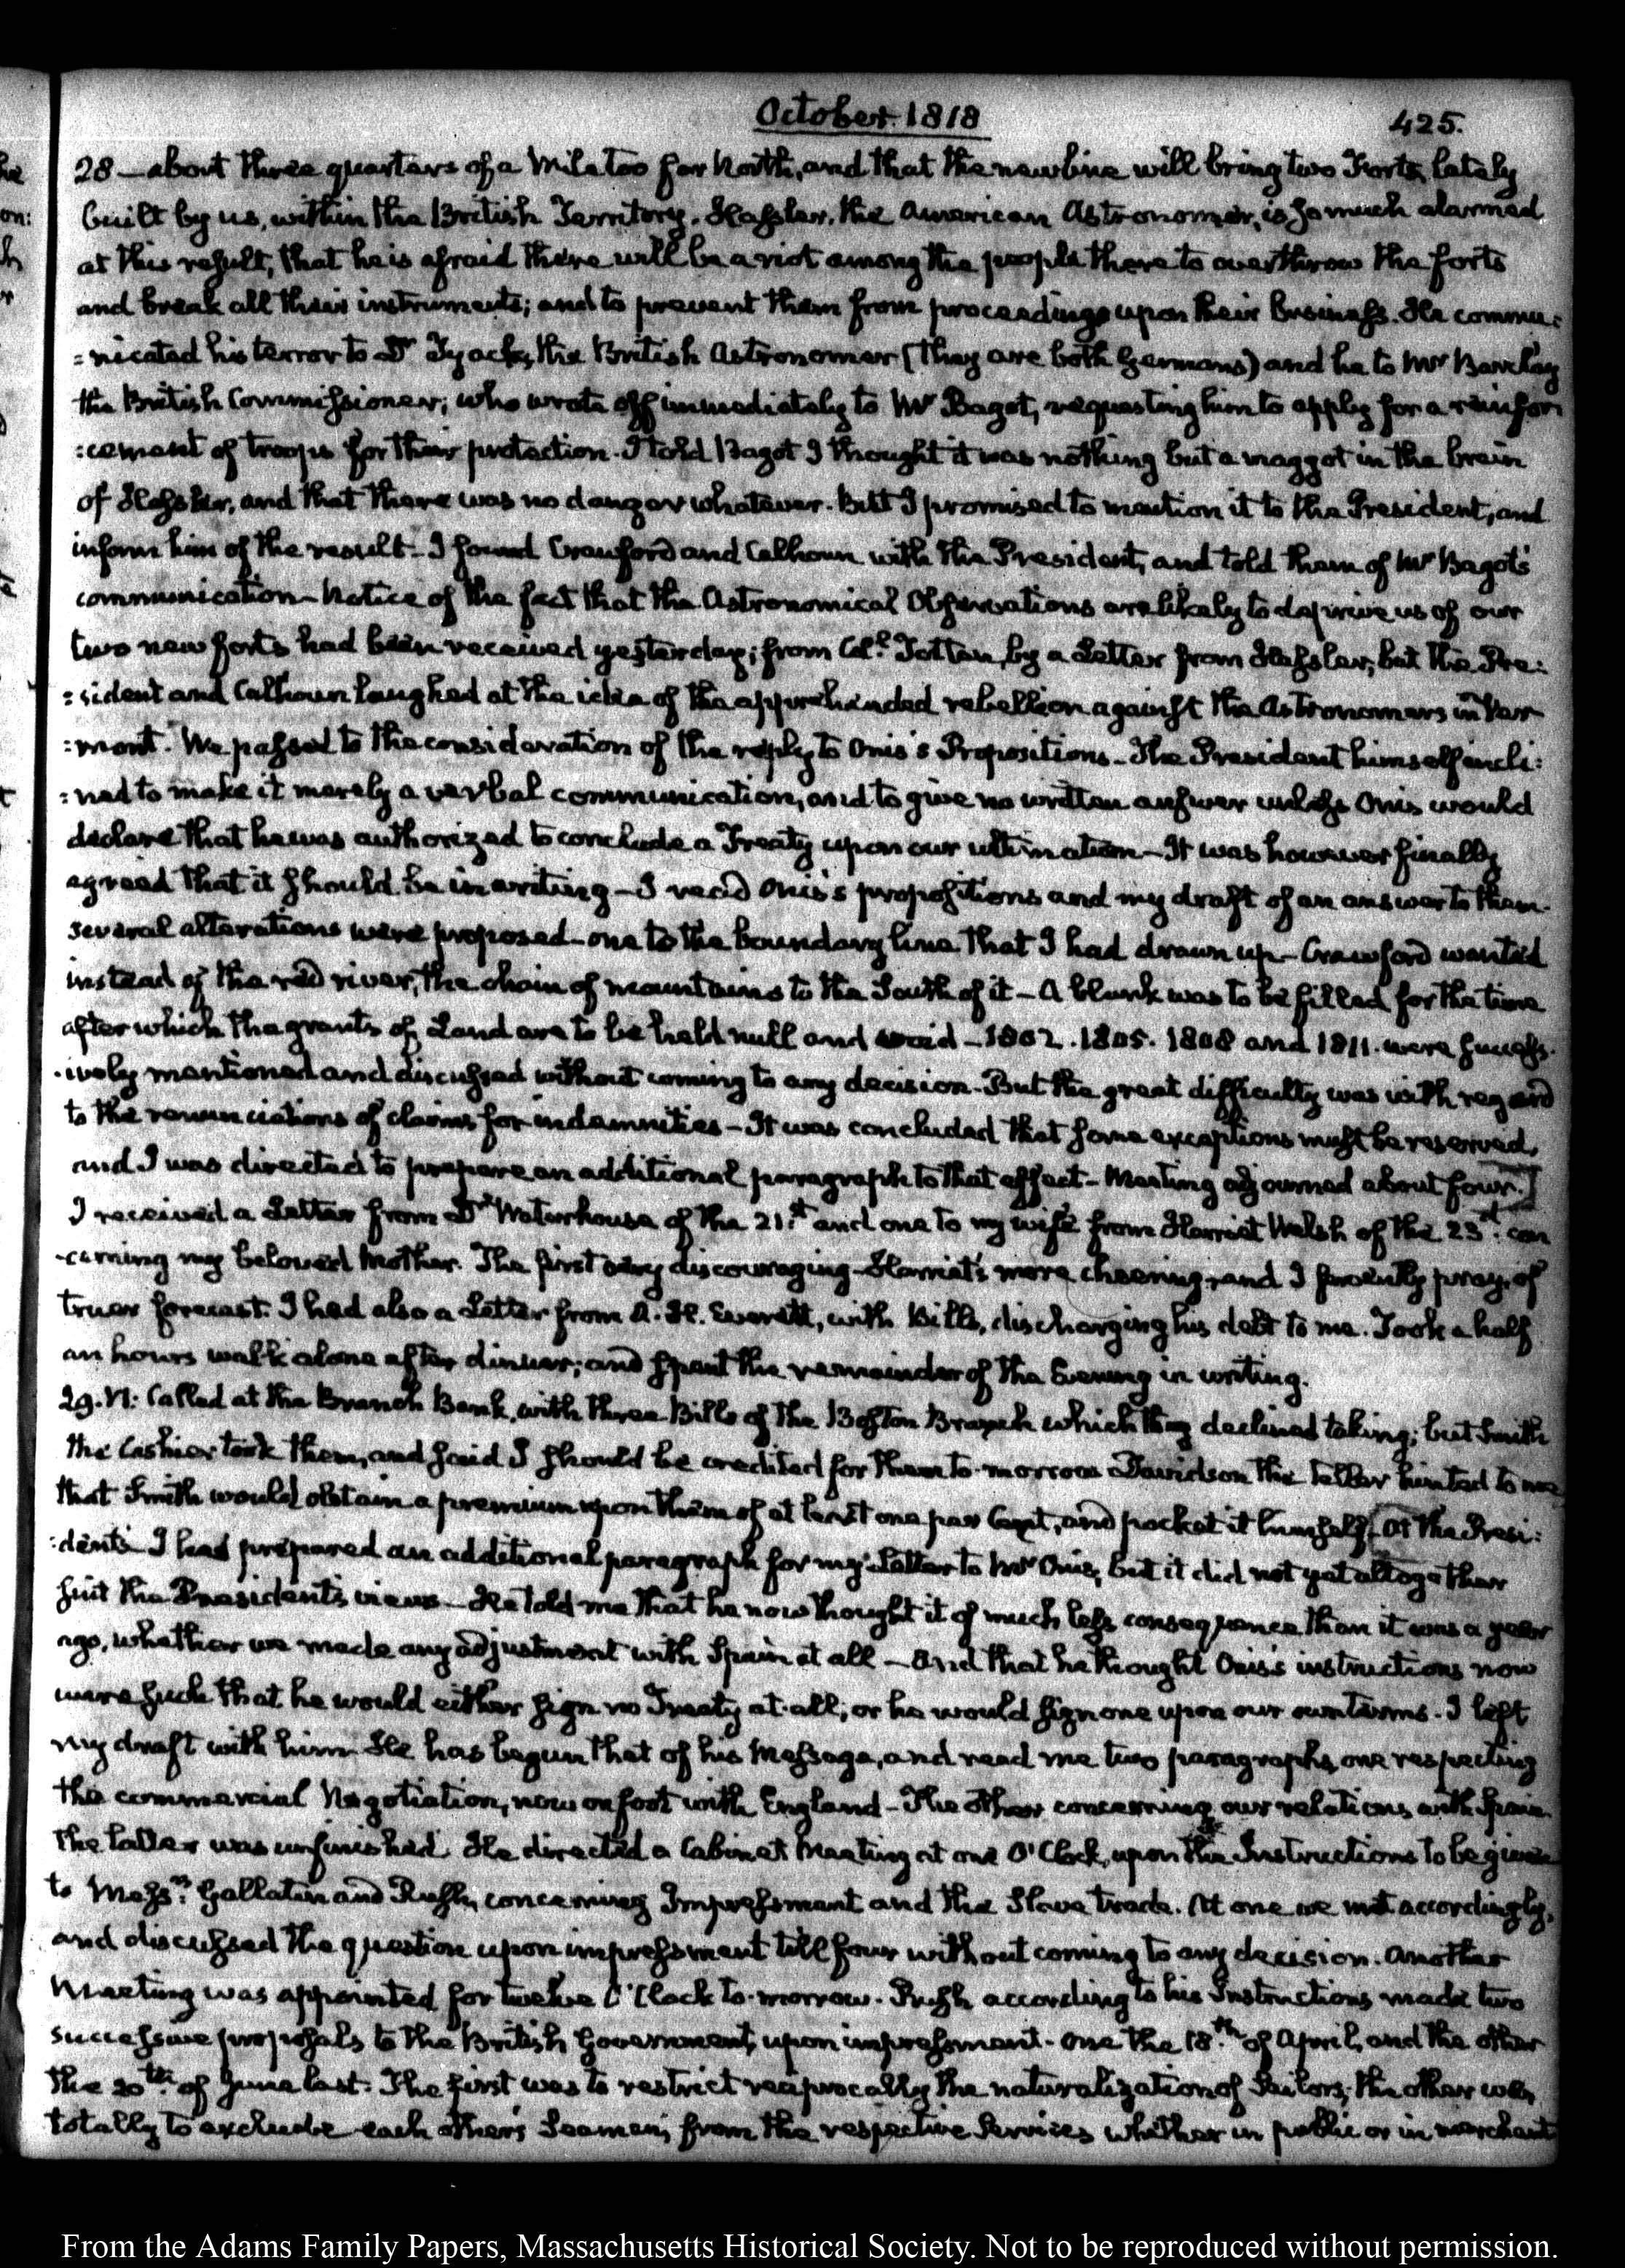 October. 1818
425.
28 — about three quarters of a Mile too far North, and that the new line will bring two Forts, lately
built by us, within the British Territory. Hassler, the American Astronomer, is so much alarmed
at this result, that he is afraid there will be a riot among the people there to overthrow the forts
and break all their instruments; and to prevent them from proceeding upon their business. He commu:
:nicated his terror to Dr. Tyacks, the British Astronomer (they are both Germans) and he to Mr Barclay
the British Commissioner; who wrote off immediately to Mr Bagot, requesting him to apply for a reinfor
:cement of troops for their protection. I told Bagot I thought it was nothing but a maggot in the brain
of Hassler, and that there was no danger whatever. But I promised to mention it to the President, and
inform him of the result — I found Crawford and Calhoun with the President, and told them of Mr Bagot's
communication — Notice of the fact that the Astronomical Observations are likely to deprive us of our
two new forts had been received yesterday; from Coll. Totten, by a Letter from Hassler, but the Pre:
:sident and Calhoun laughed at the idea of the apprehended rebellion against the Astronomers in Ver
:mont. We passed to the consideration of the reply to Onis's Propositions — The President himself incli:
:ned to make it merely a verbal communication, and to give no written answer unless Onis would
declare that he was authorized to conclude a Treaty upon our ultimatum — It was however finally
agreed that it should be in writing — I read Onis's propositions and my draft of an answer to them.
Several alterations were proposed — one to the boundary line that I had drawn up — Crawford wanted
instead of the red river, the chain of mountains to the South of it — A blank was to be filled for the time
after which the grants of Land are to be held null and void — 1802. 1805. 1808 and 1811. were success
:ively mentioned and discussed without coming to any decision. But the great difficulty was with regard
to the renunciations of claims for indemnities — It was concluded that some exceptions must be reserved,
and I was directed to prepare an additional paragraph to that effect — Meeting adjourned about four.]
I received a Letter from Dr Waterhouse of the 21.st and one to my wife from Harriet Welsh of the 23.d con
:cerning my beloved Mother. The first very discouraging — Harriet's more cheering, and I fervently pray, of
truer forecast. I had also a Letter from A. H. Everett, with Bills, discharging his debt to me. Took a half
an hours walk alone after dinner; and spent the remainder of the Evening in writing.
29. VI: Called at the Branch Bank, with three Bills of the Boston Branch which they declined taking; but Smith
the Cashier took them, and said I should be credited for them to-morrow. Davidson the Teller hinted to me
that Smith would obtain a premium upon them of at least one per Cent, and pocket it himself. [At the Presi:
:dent's I had prepared an additional paragraph for my Letter to Mr Onis, but it did not yet altogether
suit the President's views — He told me that he now thought it of much less consequence than it was a year
ago, whether we made any adjustment with Spain at all — And that he thought Onis's instructions now
were such that he would either sign no Treaty at all; or he would sign one upon our own terms. I left
my draft with him. He has begun that of his Message, and read me two paragraphs, one respecting
the commercial Negotiation, now on foot with England — The other concerning our relations with Spain.
The latter was unfinished. He directed a Cabinet Meeting at one O'Clock, upon the Instructions to be given
to Messrs. Gallatin and Rush, concerning Impressment and the Slave trade. At one we met accordingly,
and discussed the question upon impressment till four without coming to any decision. Another
Meeting was appointed for twelve O'Clock to-morrow. Rush according to his Instructions made two
successive proposals to the British Government, upon impressment — one the 18.th of April, and the other
the 20th. of June last. The first was to restrict reciprocally the naturalization of Sailors; the other was,
totally to exclude each other's Seamen, from the respective Services whether in public or in merchant
From the Adams Family Papers, Massachusetts Historical Society. Not to be reproduced without permission.